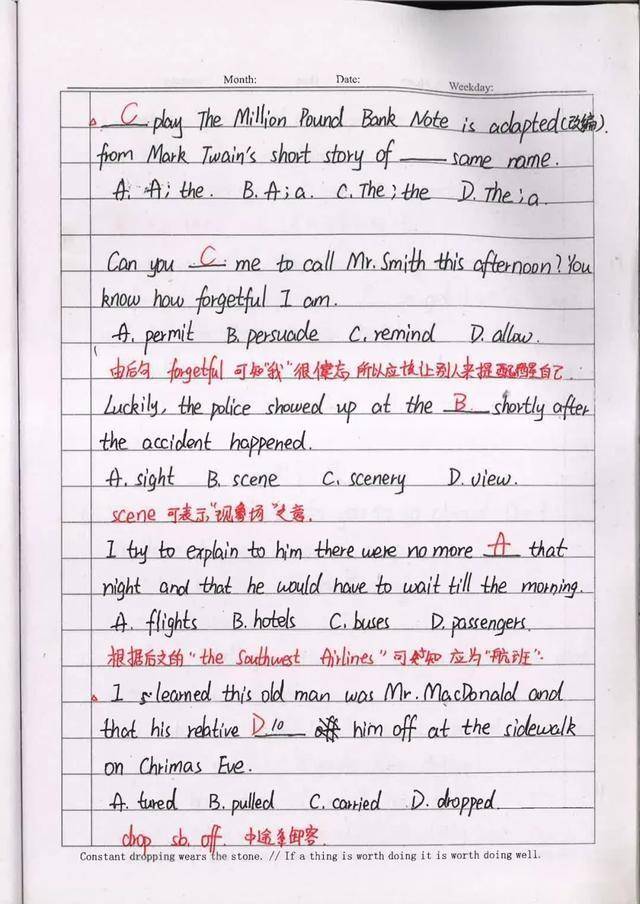 Month: Date: Weekday:
C play The Million Pound Bank Note is adapted(改编)
from Mark Twain's short story of ____ same name.
A. A; the. B. A; a. C. The; the D. The; a
Can you C me to call Mr. Smith this afternoon? You
know how forgetful I am.
A. permit B. persuade C. remind D. allow.
由后句 forgetful 可知"我"很健忘,所以应该让别人来提醒自己.
Luckily, the police showed up at the B shortly after
the accident happened.
A. sight B. scene C. scenery D. view.
scene 可表示"现场"之意.
I try to explain to him there were no more A that
night and that he would have to wait till the morning.
A. flights B. hotels C. buses D. passengers.
根据后文的"the Southwest Airlines"可知应为"航班".
I learned this old man was Mr. MacDonald and
that his relative D 10 him off at the sidewalk
on Chrimas Eve.
A. tured B. pulled C. carried D. dropped.
drop sb. off. 中途卸客
Constant dropping wears the stone. // If a thing is worth doing it is worth doing well.